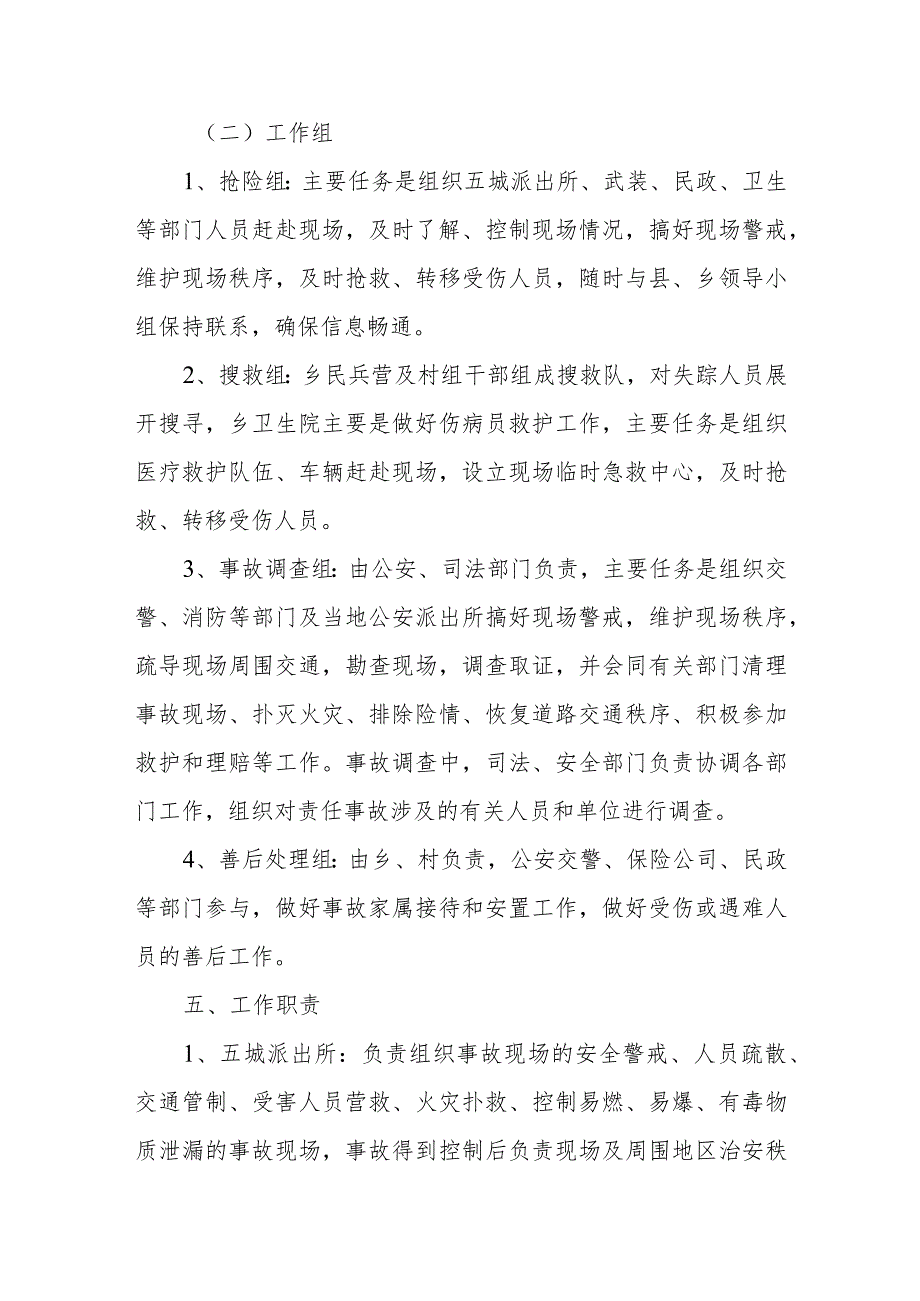 （二）工作组
1、抢险组：主要任务是组织五城派出所、武装、民政、卫生
等部门人员赶赴现场，及时了解、控制现场情况，搞好现场警戒，
维护现场秩序，及时抢救、转移受伤人员，随时与县、乡领导小
组保持联系，确保信息畅通。
2、搜救组：乡民兵营及村组干部组成搜救队，对失踪人员展
开搜寻，乡卫生院主要是做好伤病员救护工作，主要任务是组织
医疗救护队伍、车辆赶赴现场，设立现场临时急救中心，及时抢
救、转移受伤人员。
3、事故调查组：由公安、司法部门负责，主要任务是组织交
警、消防等部门及当地公安派出所搞好现场警戒，维护现场秩序，
疏导现场周围交通，勘查现场，调查取证，并会同有关部门清理
事故现场、扑灭火灾、排除险情、恢复道路交通秩序、积极参加
救护和理赔等工作。事故调查中，司法、安全部门负责协调各部
门工作，组织对责任事故涉及的有关人员和单位进行调查。
4、善后处理组：由乡、村负责，公安交警、保险公司、民政
等部门参与，做好事故家属接待和安置工作，做好受伤或遇难人
员的善后工作。
五、工作职责
1、五城派出所：负责组织事故现场的安全警戒、人员疏散、
交通管制、受害人员营救、火灾扑救、控制易燃、易爆、有毒物
质泄漏的事故现场，事故得到控制后负责现场及周围地区治安秩